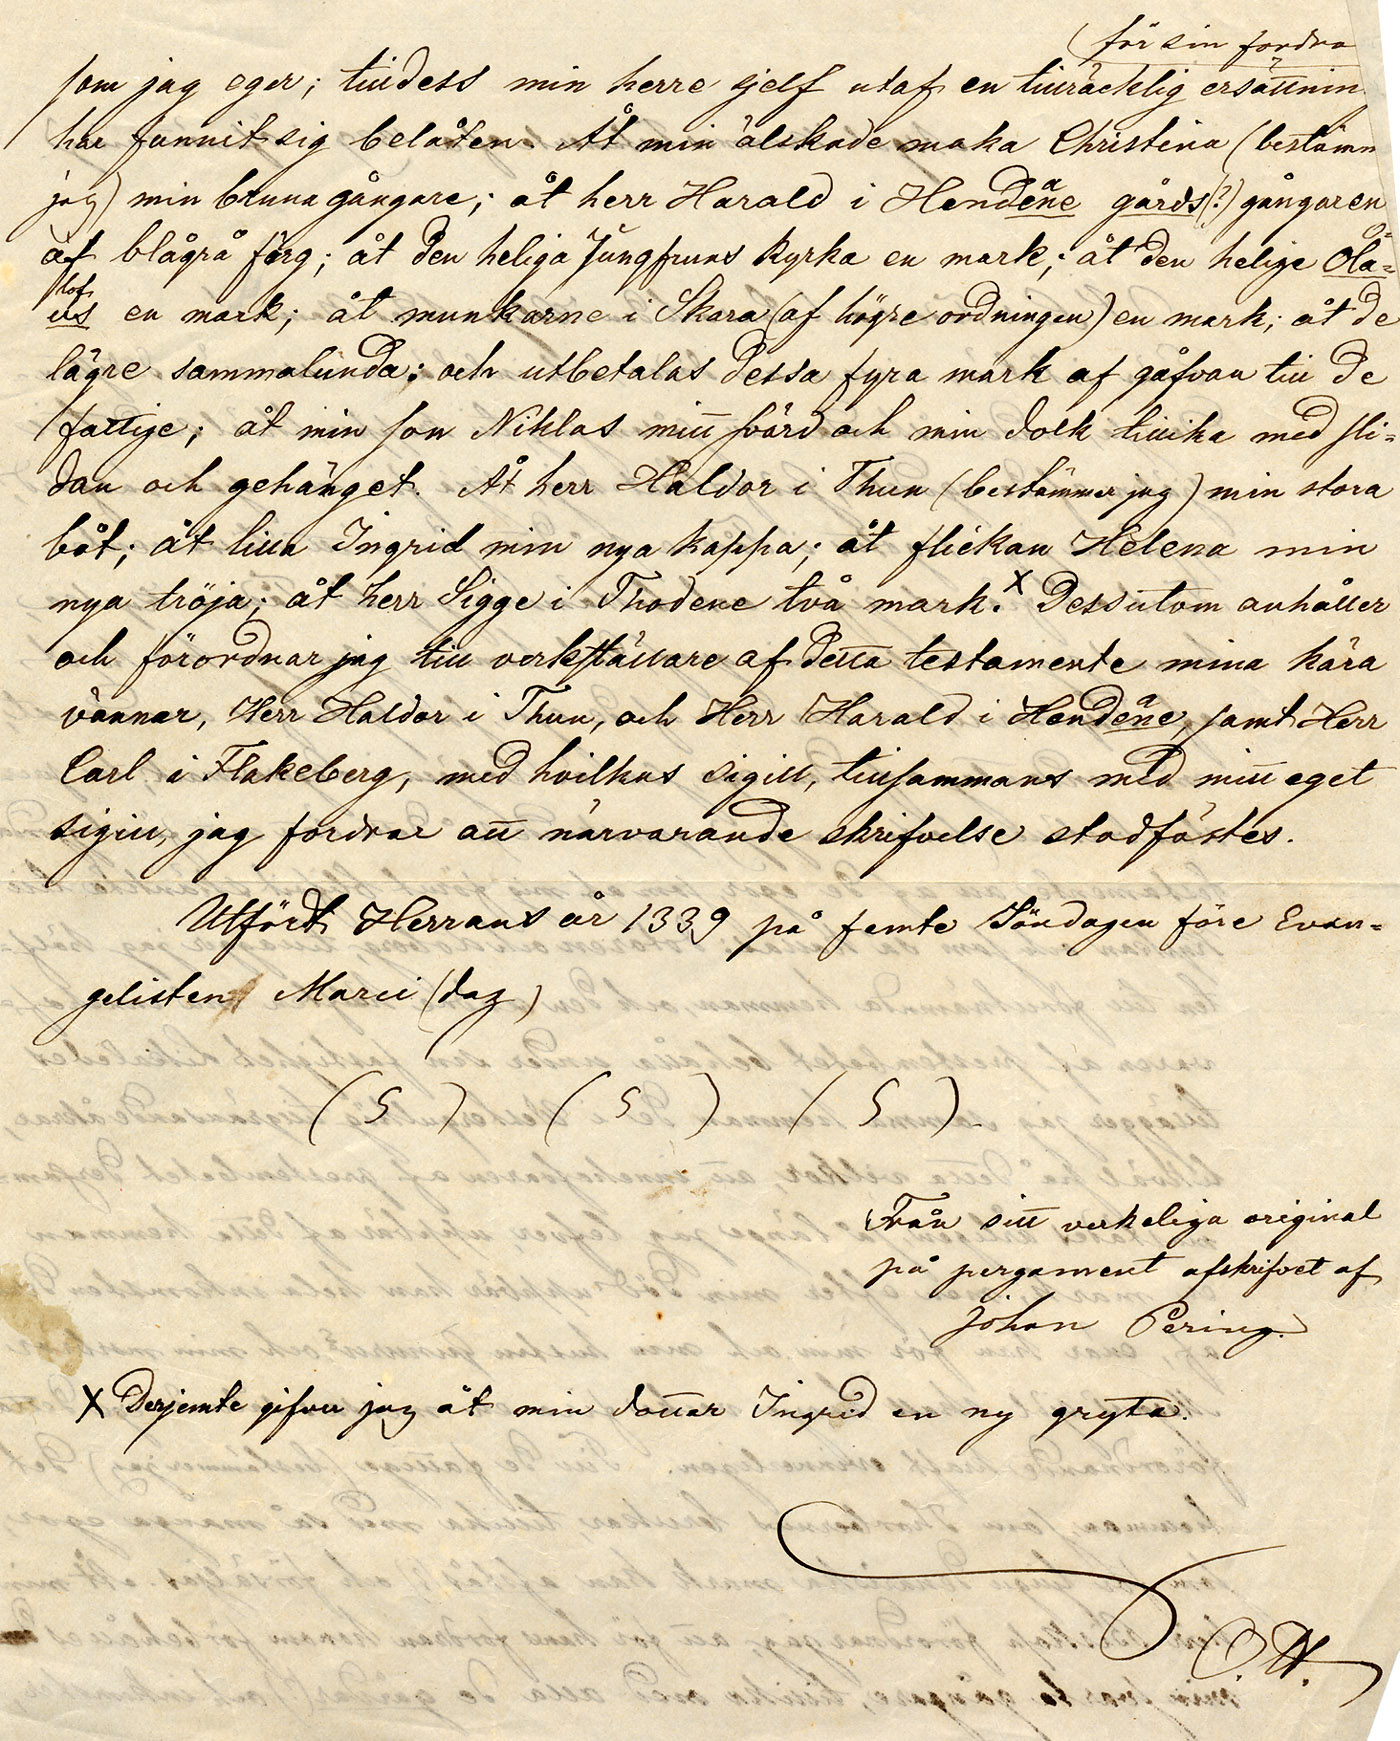 (för sin fordra
som jag eger; tilldess min herre sjelf utaf en tillräcklig ersättnin
har funnit sig belåten. Åt min älskade maka Christina (bestämm
jag) min bruna gångare; åt herr Harald i Hendene gårds(?) gångaren
af blågrå färg; åt den heliga Jungfruns kyrka en mark; åt den helige Ola=
us en mark; åt munkarne i Skara (af högre ordningen) en mark; åt de
lägre sammalunda; och utbetalas dessa fyra mark af gåfvan till de
fattige; åt min son Niklas mitt svärd och min dolk tillika med sli=
dan och gehänget. Åt herr Haldor i Thun (bestämmer jag) min stora
båt; åt lilla Ingrid min nya kappa; åt flickan Helena min
nya tröja; åt herr Sigge i Thodene två mark. X Dessutom anhåller
och förordnar jag till verkställare af detta testamente mina kära
vänner, Herr Haldor i Thun, och Herr Harald i Hendene, samt Herr
Carl i Flakeberg, med hvilkas sigill, tillsammans med mitt eget
sigill, jag fordrar att närvarande skrifvelse stadfästes.
Utfärdt Herrans år 1339 på femte Söndagen före Evan=
gelisten Marci (dag)
(S) (S) (S).
Från sitt verkeliga original
på pergament afskrifvet af
Johan Pering.
X Derjemte gifver jag åt min dotter Ingrid en ny gryta.
O.W.